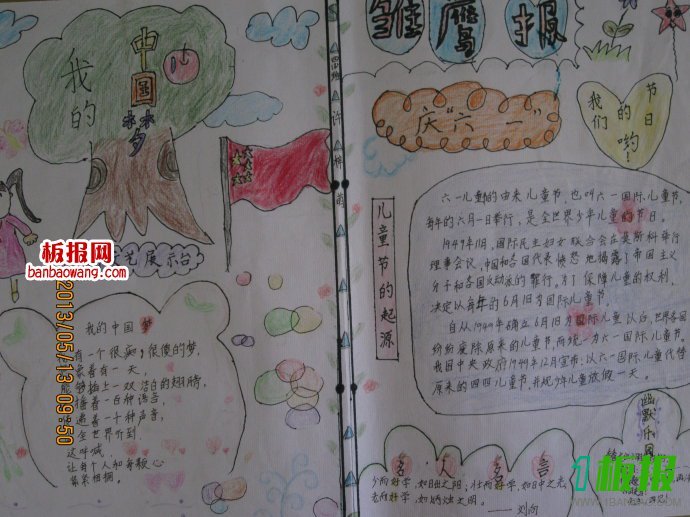 我的
中国
梦
艺展示台
我的中国梦
有一个很痴,很傻的梦,
有一天,
插上一双洁白的翅膀,
着一百种语言,
着一千种声音,
全世界听到
这呼喊
让每个人和每颗心
紧紧相拥。
雏鹰报
庆“六一”
我们的节日哟!
儿童节的起源
六一儿童的由来儿童节,也叫六一国际儿童节,
每年的六月一日举行,是全世界少年儿童的节日。
1949年11月,国际民主妇女联合会在莫斯科举行
理事会议,中国和各国代表愤怒地揭露了帝国主义
分子和各国反动派的罪行。为了保障儿童的权利,
决定以每年的6月1日为国际儿童节。
自从1949年确立6月1日为国际儿童以后,世界各国
纷纷废除原来的儿童节而统一为六一国际儿童节。
我国中央政府1949年12月宣布:以六一国际儿童代替
原来的四四儿童节,并规少年儿童放假一天。
名人名言
少而好学,如日出之阳;壮而好学,如日中之光;
老而好学,如炳烛之明。
——刘向
幽默乐园
板报网
banbaowang.com
2013/05/13 09:50
1板报